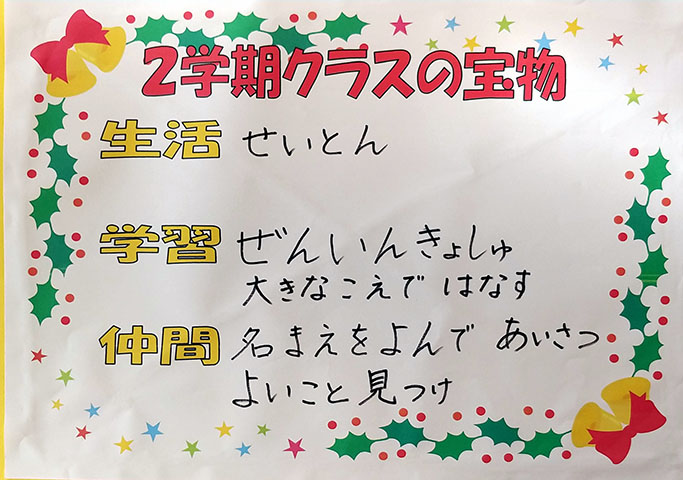 2学期クラスの宝物
生活 せいとん
学習 ぜんいんきょしゅ
大きなこえで はなす
仲間 名まえをよんで あいさつ
よいこと見つけ